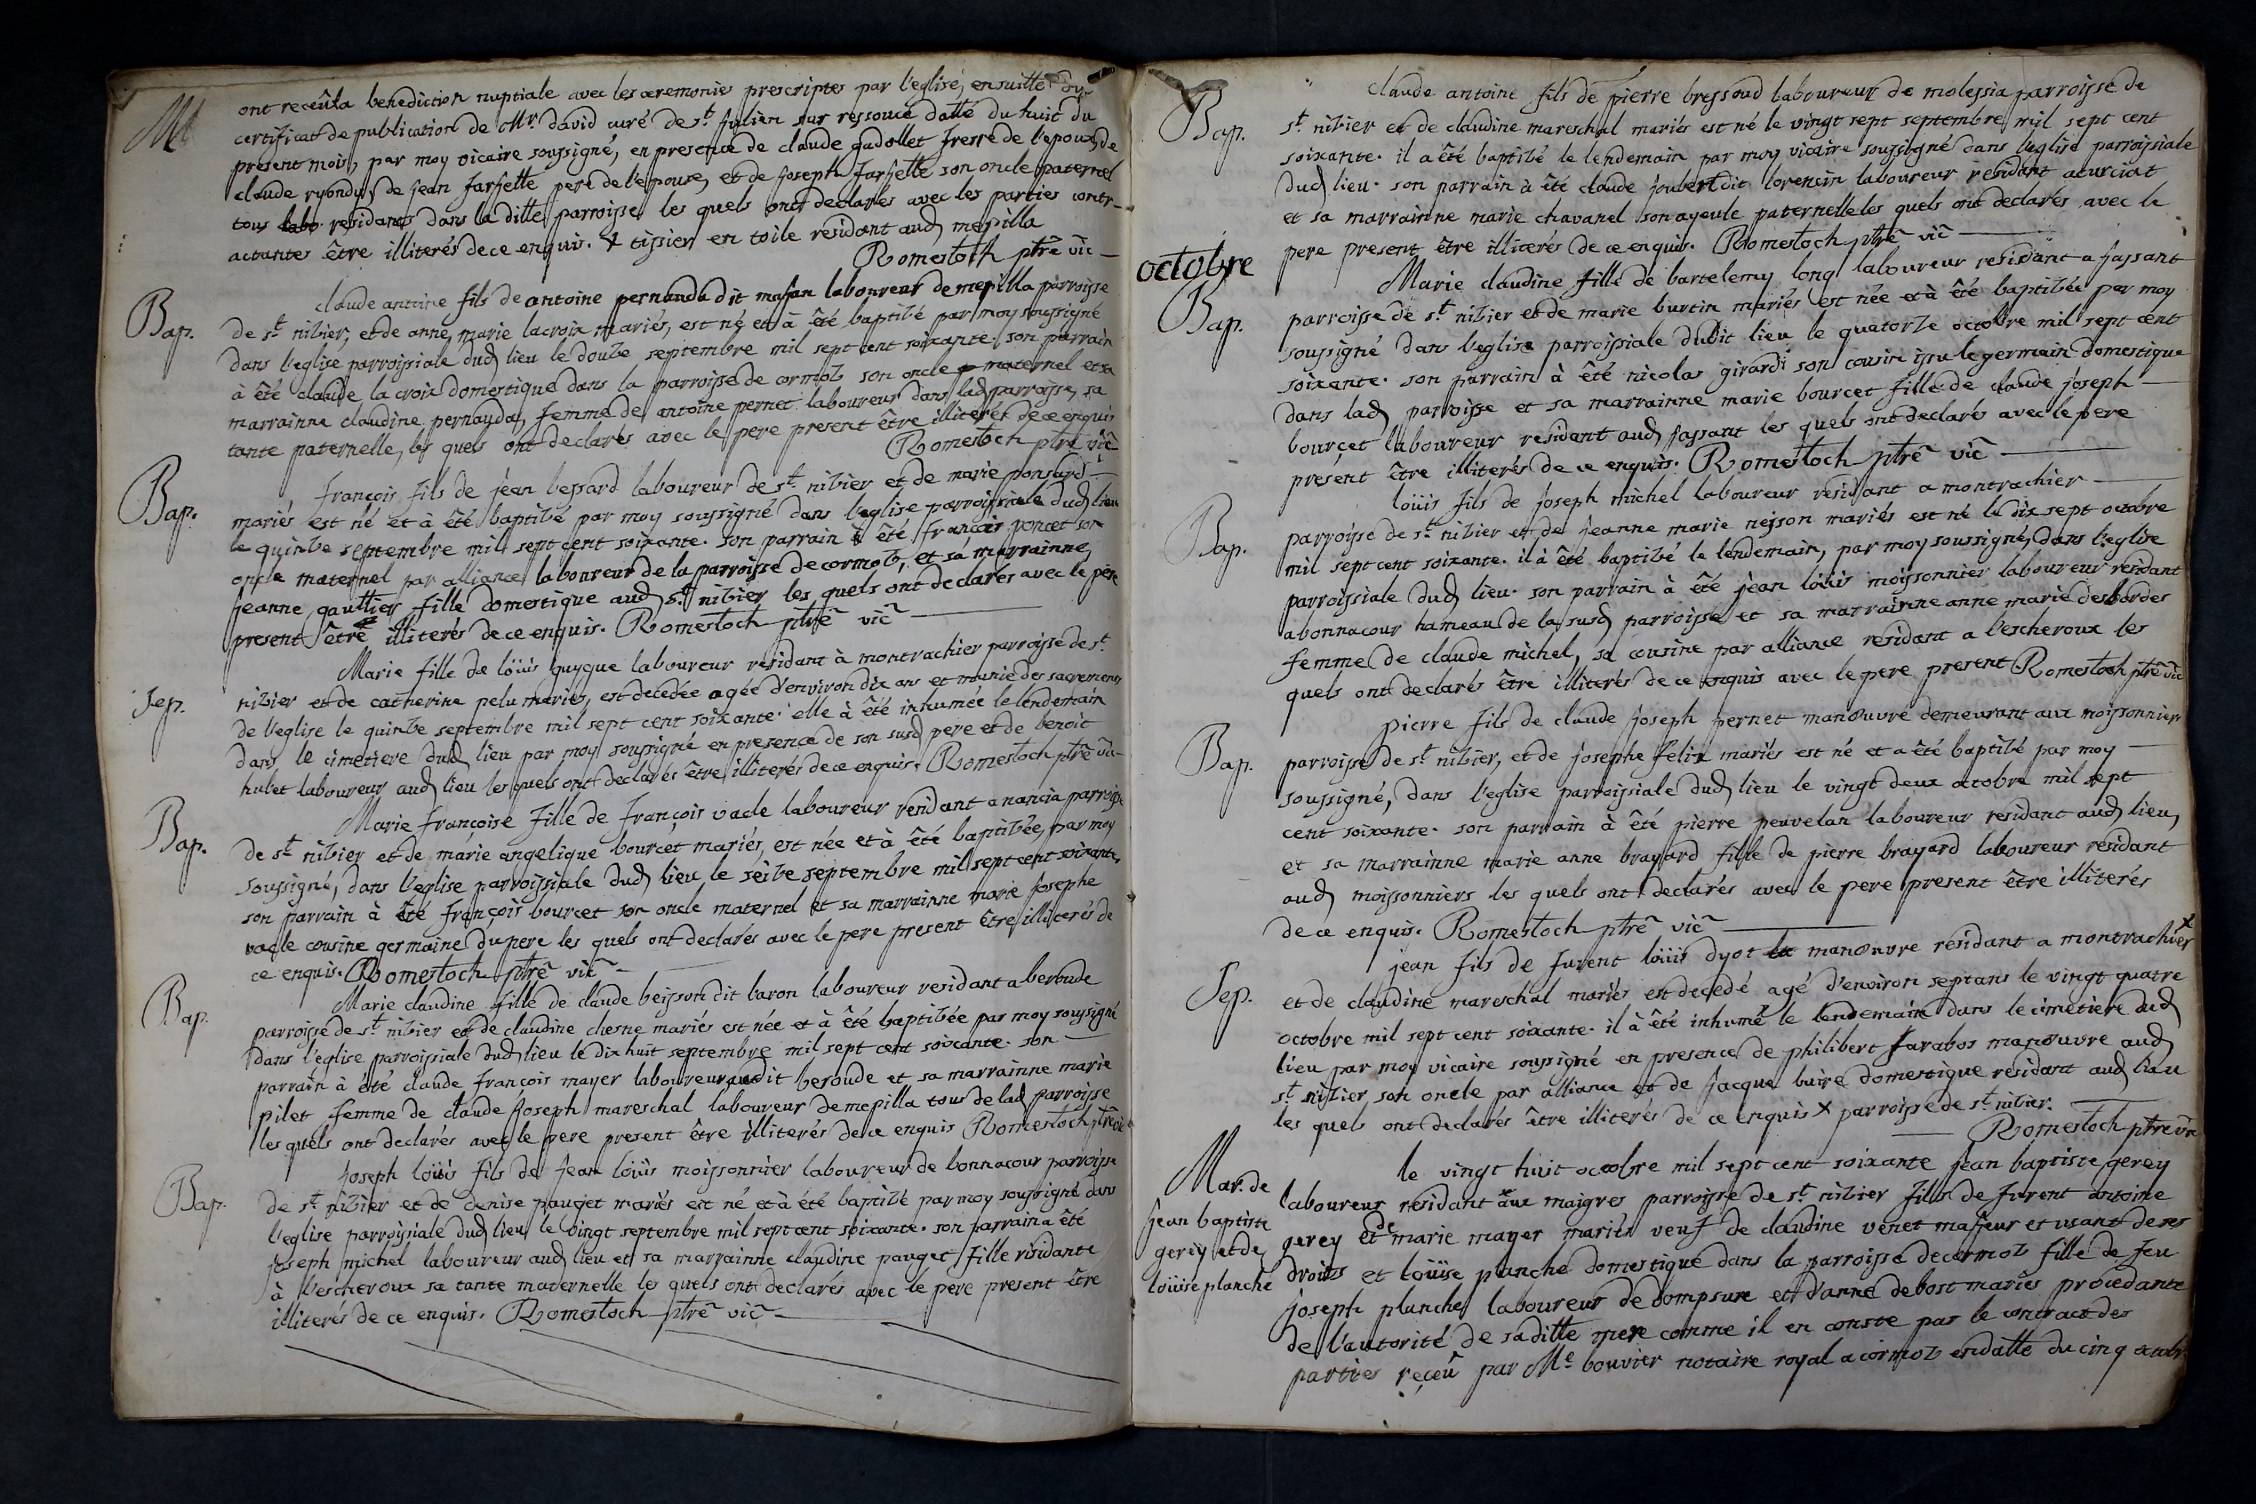 ont receû la benediction nuptiale avec les ceremonies prescriptes par l'eglise, ensuitte du
certificat de publication de Mr david curé de st julien sur ressouce datté du huit du
present mois, par moy vicaire soussigné, en presence de claude gadollet frerre de l'epoux, de
claude ryondu, de jean farfette pere de l'epouse, et de joseph farfette son oncle paternel
tous labo residants dans la ditte parroisse les quels ont declarés avec les parties contr-
actantes être illiterés de ce enquis. X tissier en toile residant aud mepilla
Romestoch ptre vic
Bap.
claude antoine fils de antoine pernauda dit masan laboureur de mepilla parroisse
de st nibier, et de anne marie lacroix mariés, est né et à été baptibé par moy soussigné
dans l'eglise parroissiale dud lieu le doube septembre mil sept cent soixante son parrain
à été claude lacroix domestique dans la parroisse de cormob son oncle maternel et sa
marrainne claudine pernauda, femme de antoine pernet laboureur dans lad parroisse, sa
tante paternelle, les quels ont declarés avec le pere present être illiterés de ce enquis
Romestoch ptre vic
Bap.
françois fils de jean bessard laboureur de st nibier et de marie ponsard
mariés est né et à été baptibé par moy soussigné dans l'eglise parroissiale dud lieu
le quinbe septembre mil sept cent soixante. son parrain à été françois poncet son
oncle maternel par alliance laboureur de la parroisse de cormob, et sa marrainne
jeanne gaultier fille domestique aud st nibier les quels ont declarés avec le pere
present être illiterés de ce enquis. Romestoch ptre vic
Sep.
Marie fille de loüis guyque laboureur residant à montrachier parroisse de st
nibier et de catherine pelu mariés, est decedée agée d'environ dix ans et munie des sacremens
de l'eglise le quinbe septembre mil sept cent soixante. elle à été inhumée le lendemain
dans le cimetiere dud lieu par moy soussigné en presence de son susd pere et de benoit
hulet laboureur aud lieu les quels ont declarés être illiterés de ce enquis. Romestoch ptre vic
Bap.
Marie françoise fille de françois vacle laboureur residant a nancia parroisse
de st nibier et de marie angelique bourcet mariés, est née et à été baptibée, par moy
soussigné, dans l'eglise parroissiale dud lieu le seibe septembre mil sept cent soixante,
son parrain à été françois bourcet son oncle maternel et sa marrainne marie josephe
vacle cousine germaine du pere les quels ont declarés avec le pere present être illiterés de
ce enquis. Romestoch ptre vic
Bap.
Marie claudine fille de claude beisson dit baron laboureur residant a beroude
parroisse de st nibier et de claudine chesne mariés est née et à été baptibée par moy soussigné
dans l'eglise parroissiale dud lieu le dix huit septembre mil sept cent soixante. son
parrain à été claude françois mayer laboureur audit beroude et sa marrainne marie
pilet femme de claude joseph mareschal laboureur de mepilla tous de lad parroisse
les quels ont declarés avec le pere present être illiterés de ce enquis Romestoch ptre vic
Bap.
joseph loüis fils de jean loüis moissonnier laboureur de bonnacour parroisse
de st nibier et de denise pauget mariés est né et à été baptibé par moy soussigné dans
l'eglise parroissiale dud lieu le vingt septembre mil sept cent soixante. son parrain a été
joseph michel laboureur aud lieu et sa marrainne claudine pauget fille résidante
à l'escheroux sa tante maternelle les quels ont declarés avec le pere present être
illiterés de ce enquis. Romestoch ptre vic
Bap.
Claude antoine fils de pierre bressoud laboureur de molessia parroisse de
st nibier et de claudine mareschal mariés est né le vingt sept septembre mil sept cent
soixante. il a été baptibé le lendemain par moy vicaire soussigné dans l'eglise parroissiale
dud lieu. son parrain à été claude joubert dit lorencin laboureur residant a curciat
et sa marrainne marie chavanel son ayeule paternelle les quels ont declarés avec le
pere present être illiterés de ce enquis. Romestoch ptre vic
octobre
Bap.
Marie claudine fille de bartelemy long laboureur residant a fassant
parroisse de st nibier et de marie burtin mariés est née et à été baptibée par moy
soussigné dans l'eglise parroissiale dudit lieu le quatorbe octobre mil sept cent
soixante. son parrain à été nicolas girardi son cousin issu le germain domestique
dans lad parroisse et sa marrainne marie bourcet fille de claude joseph
bourcet laboureur residant aud fassant les quels ont declarés avec le pere
présent être illiterés de ce enquis. Romestoch ptre vic
Bap.
loüis fils de joseph michel laboureur residant a montrachier
parroisse de st nibier et de jeanne marie neisson mariés est né le dix sept octobre
mil sept cent soixante. il à été baptibé le lendemain, par moy soussigné, dans l'eglise
parroissiale dud lieu. son parrain à été jean loüis moissonnier laboureur residant
a bonnacour hameau de la susd parroisse et sa marrainne anne marie desbordes
femme de claude michel, sa cousine par alliance residant a l'escheroux les
quels ont declarés être illiterés de ce enquis avec le pere present. Romestoch ptre vic
Bap.
pierre fils de claude joseph pernet manœuvre demeurant aux moissonniers
parroisse de st nibier, et de josephe felix mariés est né et a été baptibé par moy
soussigné, dans l'eglise parroissiale dud lieu le vingt deux octobre mil sept
cent soixante. son parrain à été pierre peuvelan laboureur residant aud lieu,
et sa marrainne marie anne brayard fille de pierre brayard laboureur residant
aud moissonniers les quels ont declarés avec le pere present être illiterés
de ce enquis. Romestoch ptre vic
Sep.
jean fils de furent loüis dyot manœuvre residant a montrachier X
et de claudine mareschal mariés est decedé agé d'environ sept ans le vingt quatre
octobre mil sept cent soixante. il à été inhumé le lendemain dans le cimetiere dud
lieu par moy vicaire soussigné en presence de philibert farabos manœuvre aud
st nibier son oncle par alliance et de jacque buire domestique residant aud lieu
les quels ont declarés être illiterés de ce enquis X parroisse de st nibier.
Romestoch ptre vic
Mar. de
jean baptiste
gerey et de
loüise planche
le vingt huit octobre mil sept cent soixante jean baptiste gerey
laboureur residant aux maigres parroisse de st nibier fils de furent antoine
gerey et de marie mayer mariés veuf de claudine venet majeur et usant de ses
droits et loüise planche domestique dans la parroisse de cormob fille de feu
joseph planche laboureur de dompsure et d'anne debost mariés procedante
de l'autorité de sa ditte mere comme il en conste par le contract des
parties reçeû par Me bouvier notaire royal a cormob en datte du cinq octobre